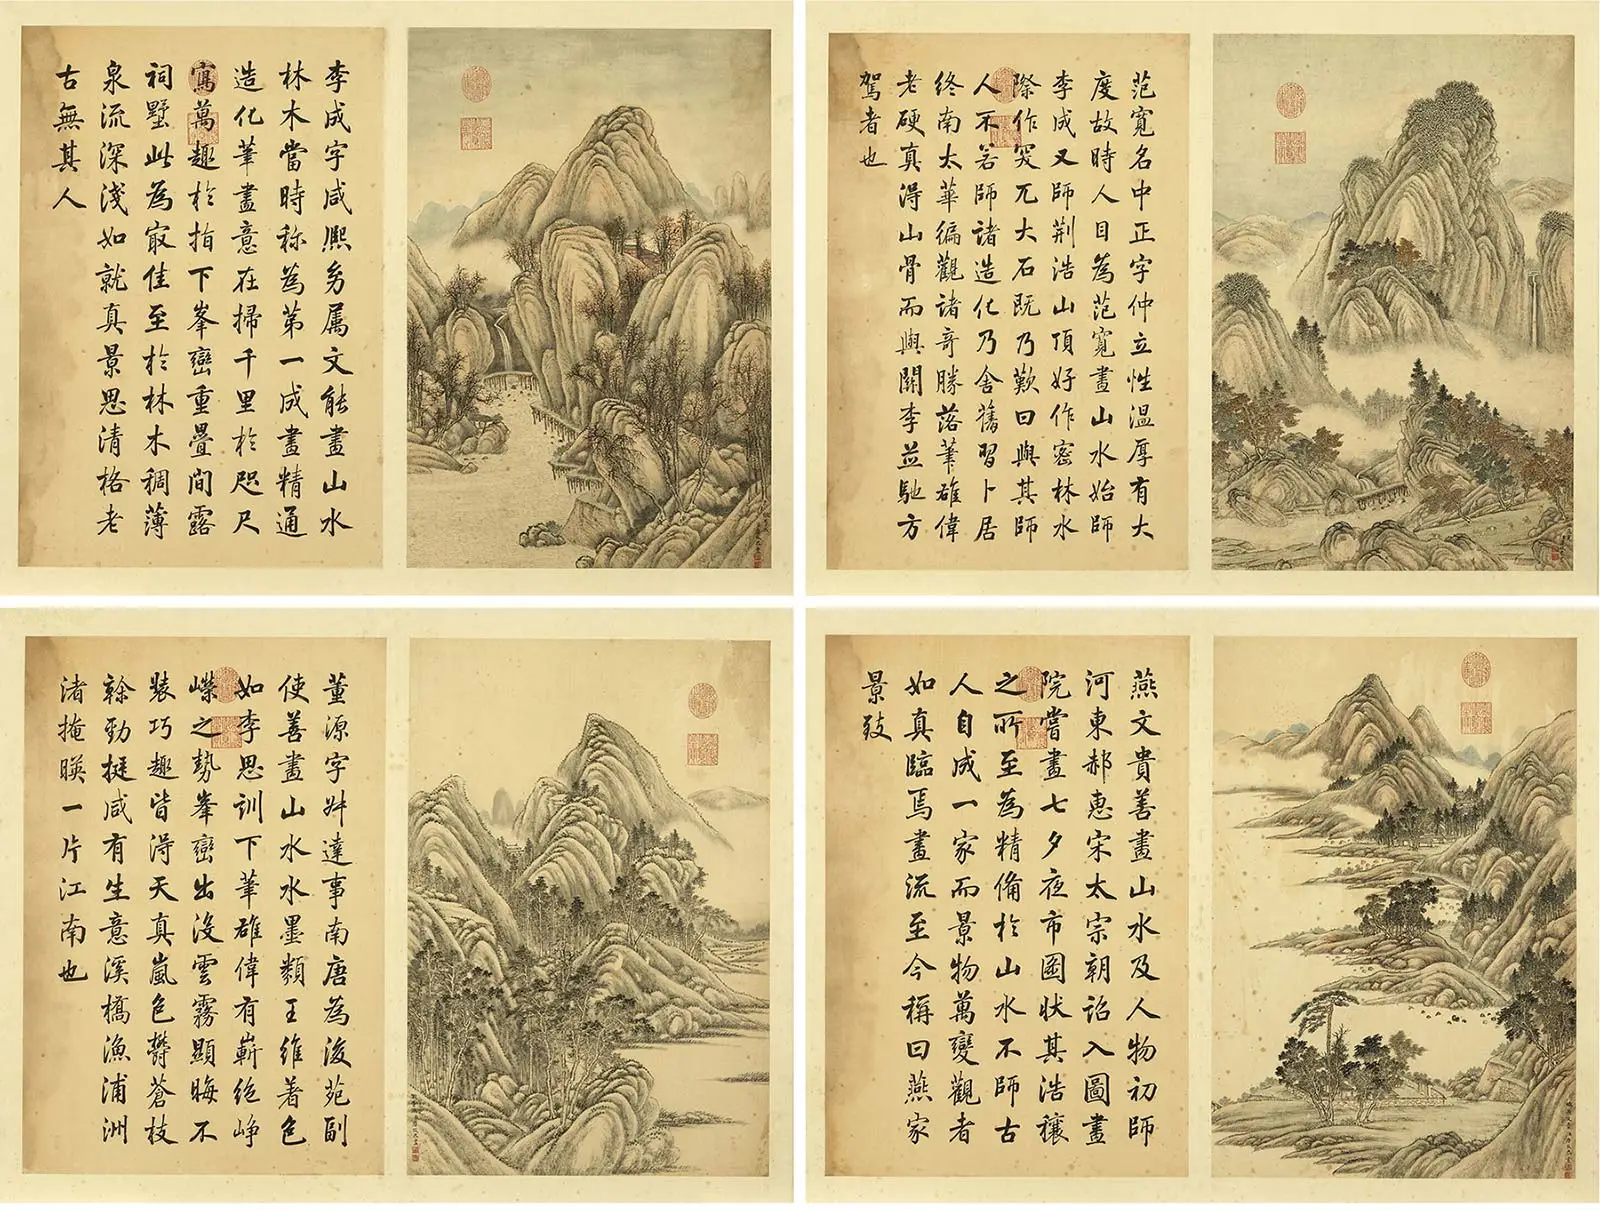 李成字咸熙系属文能畫山水
林木當時称為第一成畫精通
造化筆畫意在掃千里於咫尺
寫萬趣於指下峯巒重疊間露
祠墅此為冣佳至於林木稠薄
泉流深淺如就真景思清格老
古無其人
范寬名中正字仲立性温厚有大
度故時人目為范寬畫山水始師
李成又師荆浩山頂好作密林水
際作突兀大石既乃歎曰與其師
人不若師諸造化乃舍舊習卜居
終南太華徧觀諸奇勝落筆雄偉
老硬真淂山骨而與關李並馳方
駕者也
董源字叔達事南唐為後苑副
使善畫山水水墨類王維著色
如李思訓下筆雄偉有嶄绝崢
嶸之勢峯巒出没雲霧顯晦不
裝巧趣皆淂天真嵐色鬱蒼枝
榦勁挺咸有生意溪橋漁浦洲
渚掩暎一片江南也
燕文貴善畫山水及人物初師
河東郝惠宋太宗朝詔入圖畫
院嘗畫七夕夜市圖状其浩穰
之所至為精備於山水不師古
人自成一家而景物萬變觀者
如真臨焉畫流至今稱曰燕家
景致